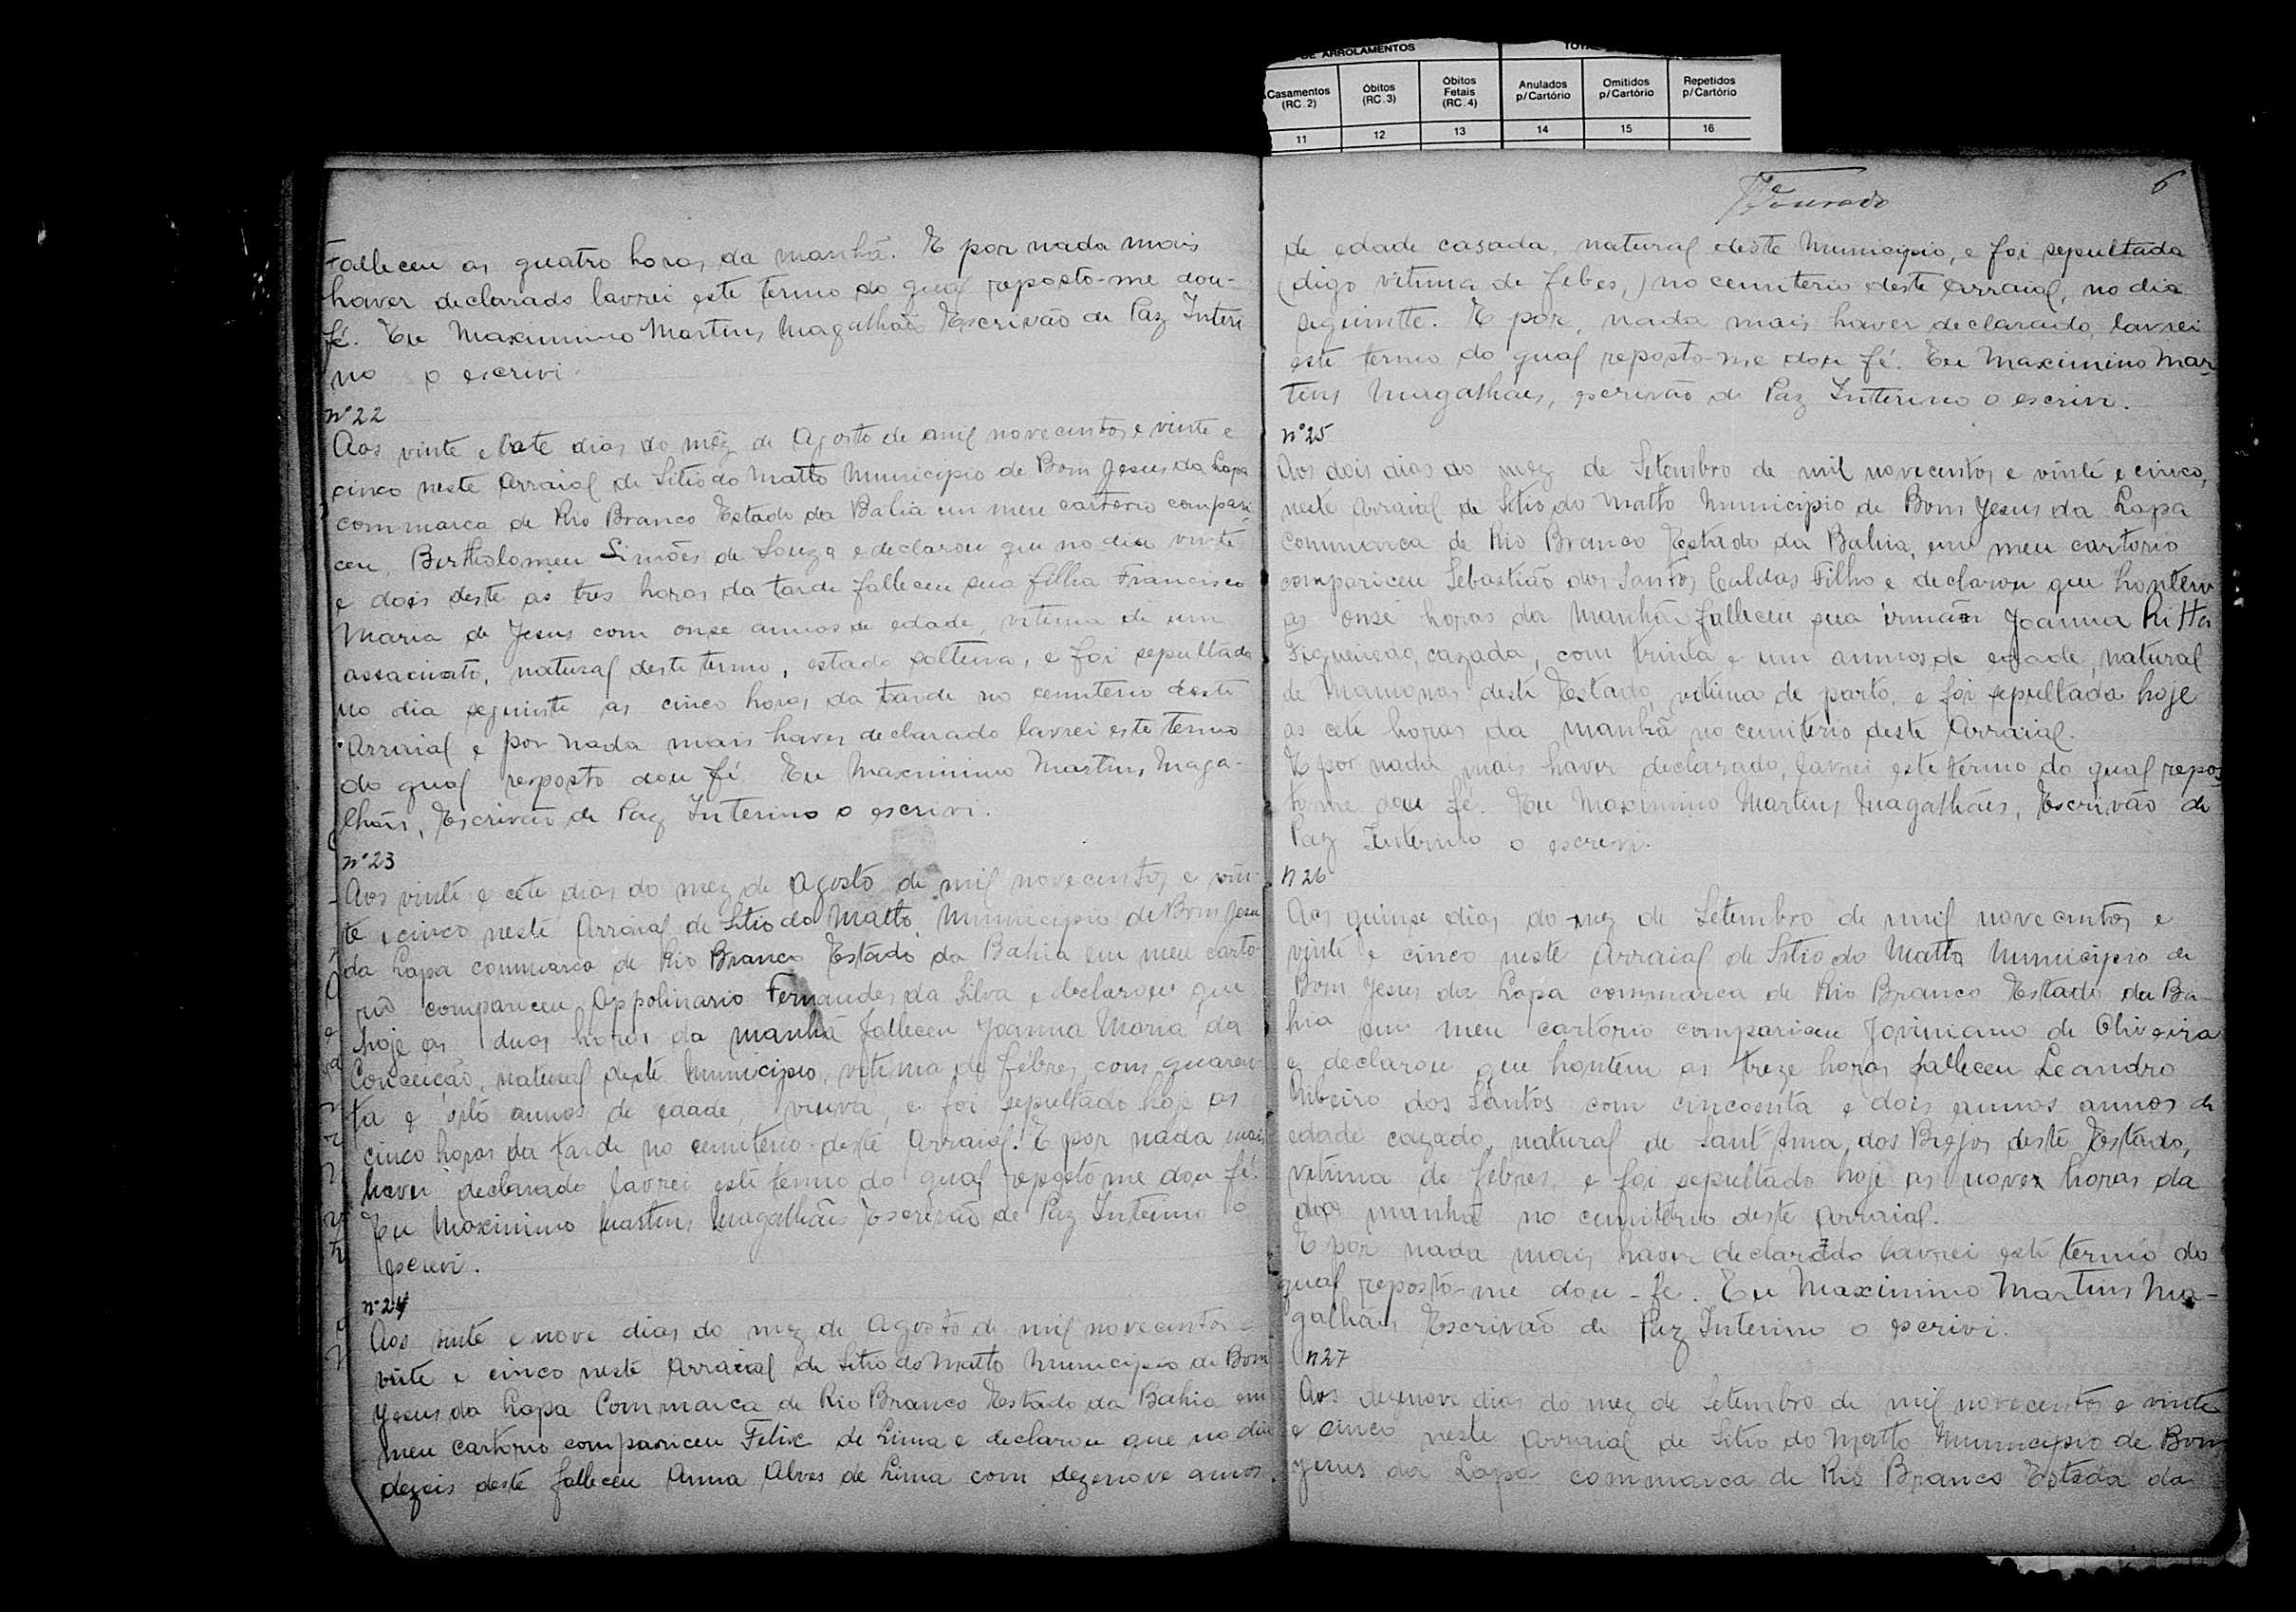 DE ARROLAMENTOS
Casamentos (RC.2) Óbitos (RC.3) Óbitos Fetais (RC.4) Anulados p/Cartório Omitidos p/Cartório Repetidos p/Cartório
11 12 13 14 15 16
Falleceu as quatro horas da manhã. E por nada mais
haver declarado lavrei este termo do qual reposto-me dou-
fé. Eu Maximino Martins Magalhães Escrivão de Paz Interi
no o escrivi.
nº 22
Aos vinte e cete dias do mêz de Agosto de mil novecentos e vinte e
cinco neste Arraial de Sitio do Matto Municipio de Bom Jesus da Lapa
commarca de Rio Branco Estado da Bahia em meu cartorio compari
ceu, Bertholomeu Simões de Souza e declarou que no dia vinte
e dois deste as tres horas da tarde falleceu sua filha Francisca
Maria de Jesus com onse annos de edade, vitima de um
assacinato, natural deste termo, estado solteira, e foi sepultada
no dia seguinte as cinco horas da tarde no cemiterio deste
Arraial e por nada mais haver declarado lavrei este termo
do qual resposto dou fé. Eu Maximino Martins Maga-
lhães, Escrivão de Paz Interino o escrivi.
nº 23
Aos vinte e cete dias do mez de Agosto de mil novecentos e vin-
te e cinco neste Arraial de Sitio do Matto, Municipio de Bom Jesu
da Lapa commarca de Rio Branco Estado da Bahia em meu carto-
rio compariceu Appolinario Fernandes da Silva e declarou que
hoje as duas horas da manhã falleceu Joanna Maria da
Conceição, natural deste Municipio, vitima de fébres, com quaren-
ta e oito annos de edade, viuva, e foi sepultado hoje as
cinco horas da tarde no cemiterio deste Arraial. E por nada mais
haver declarado lavrei este termo do qual reposto me dou fé.
Eu Maximino Martins Magalhães Escrivão de Paz Interino o
escrivi.
nº 24
Aos vinte e nove dias do mez de Agosto de mil novecentos =
vinte e cinco neste Arraial de Sitio do Matto Municipio de Bom
Jesus da Lapa Commarca de Rio Branco Estado da Bahia em
meu cartorio compariceu Felix de Lima e declarou que no dia
dezeis deste falleceu Anna Alves de Lima com dezenove annos
6
de edade casada, natural deste Municipio, e foi sepultada
(digo vitima de febes,) no cemiterio deste Arraial, no dia
seguinte. E por, nada mais haver declarado, lavrei
este termo do qual reposto-me dou fé. Eu Maximino Mar-
tins Magalhães, escrivão de Paz Interino o escrivi.
nº 25
Aos dois dias do mez de Setembro de mil novecentos e vinte e cinco,
neste Arraial de Sitio do Matto Municipio de Bom Jesus da Lapa
commarca de Rio Branco Estado da Bahia, em meu cartorio
compariceu Sebastião dos Santos Caldas Filho e declarou que hontem
as onse horas da manhã falleceu sua irmãa Joanna Ritta
Figueiredo, cazada, com trinta e um annos de edade, natural
de Mamonas deste Estado, vitima de parto, e foi sepultada hoje
as cete horas da manhã no cemiterio deste Arraial.
E por nada mais haver declarado, lavrei este termo do qual repos
to me dou fé. Eu Maximino Martins Magalhães, Escrivão de
Paz Interino o escrivi.
n 26
Aos quinse dias do mez de Setembro de mil novecentos e
vinte e cinco neste Arraial de Sitio do Matto Municipio de
Bom Jesus da Lapa commarca de Rio Branco Estado da Ba-
hia em meu cartorio compariceu Joviniano de Oliveira
e declarou que hontem as treze horas falleceu Leandro
Ribeiro dos Santos com cincoenta e dois annos annos de
edade cazado, natural de Sant'Anna dos Brejos deste Estado,
vitima de febres, e foi sepultado hoje as nove horas da
manhã no cemiterio deste Arraial.
E por nada mais haver declarado lavrei este termo do
qual reposto-me dou-fé. Eu Maximino Martins Ma-
galhães Escrivão de Paz Interino o escrivi.
n 27
Aos dezenove dias do mez de Setembro de mil novecentos e vinte
e cinco neste Arraial de Sitio do Matto Municipio de Bom
Jesus da Lapa commarca de Rio Branco Estado da